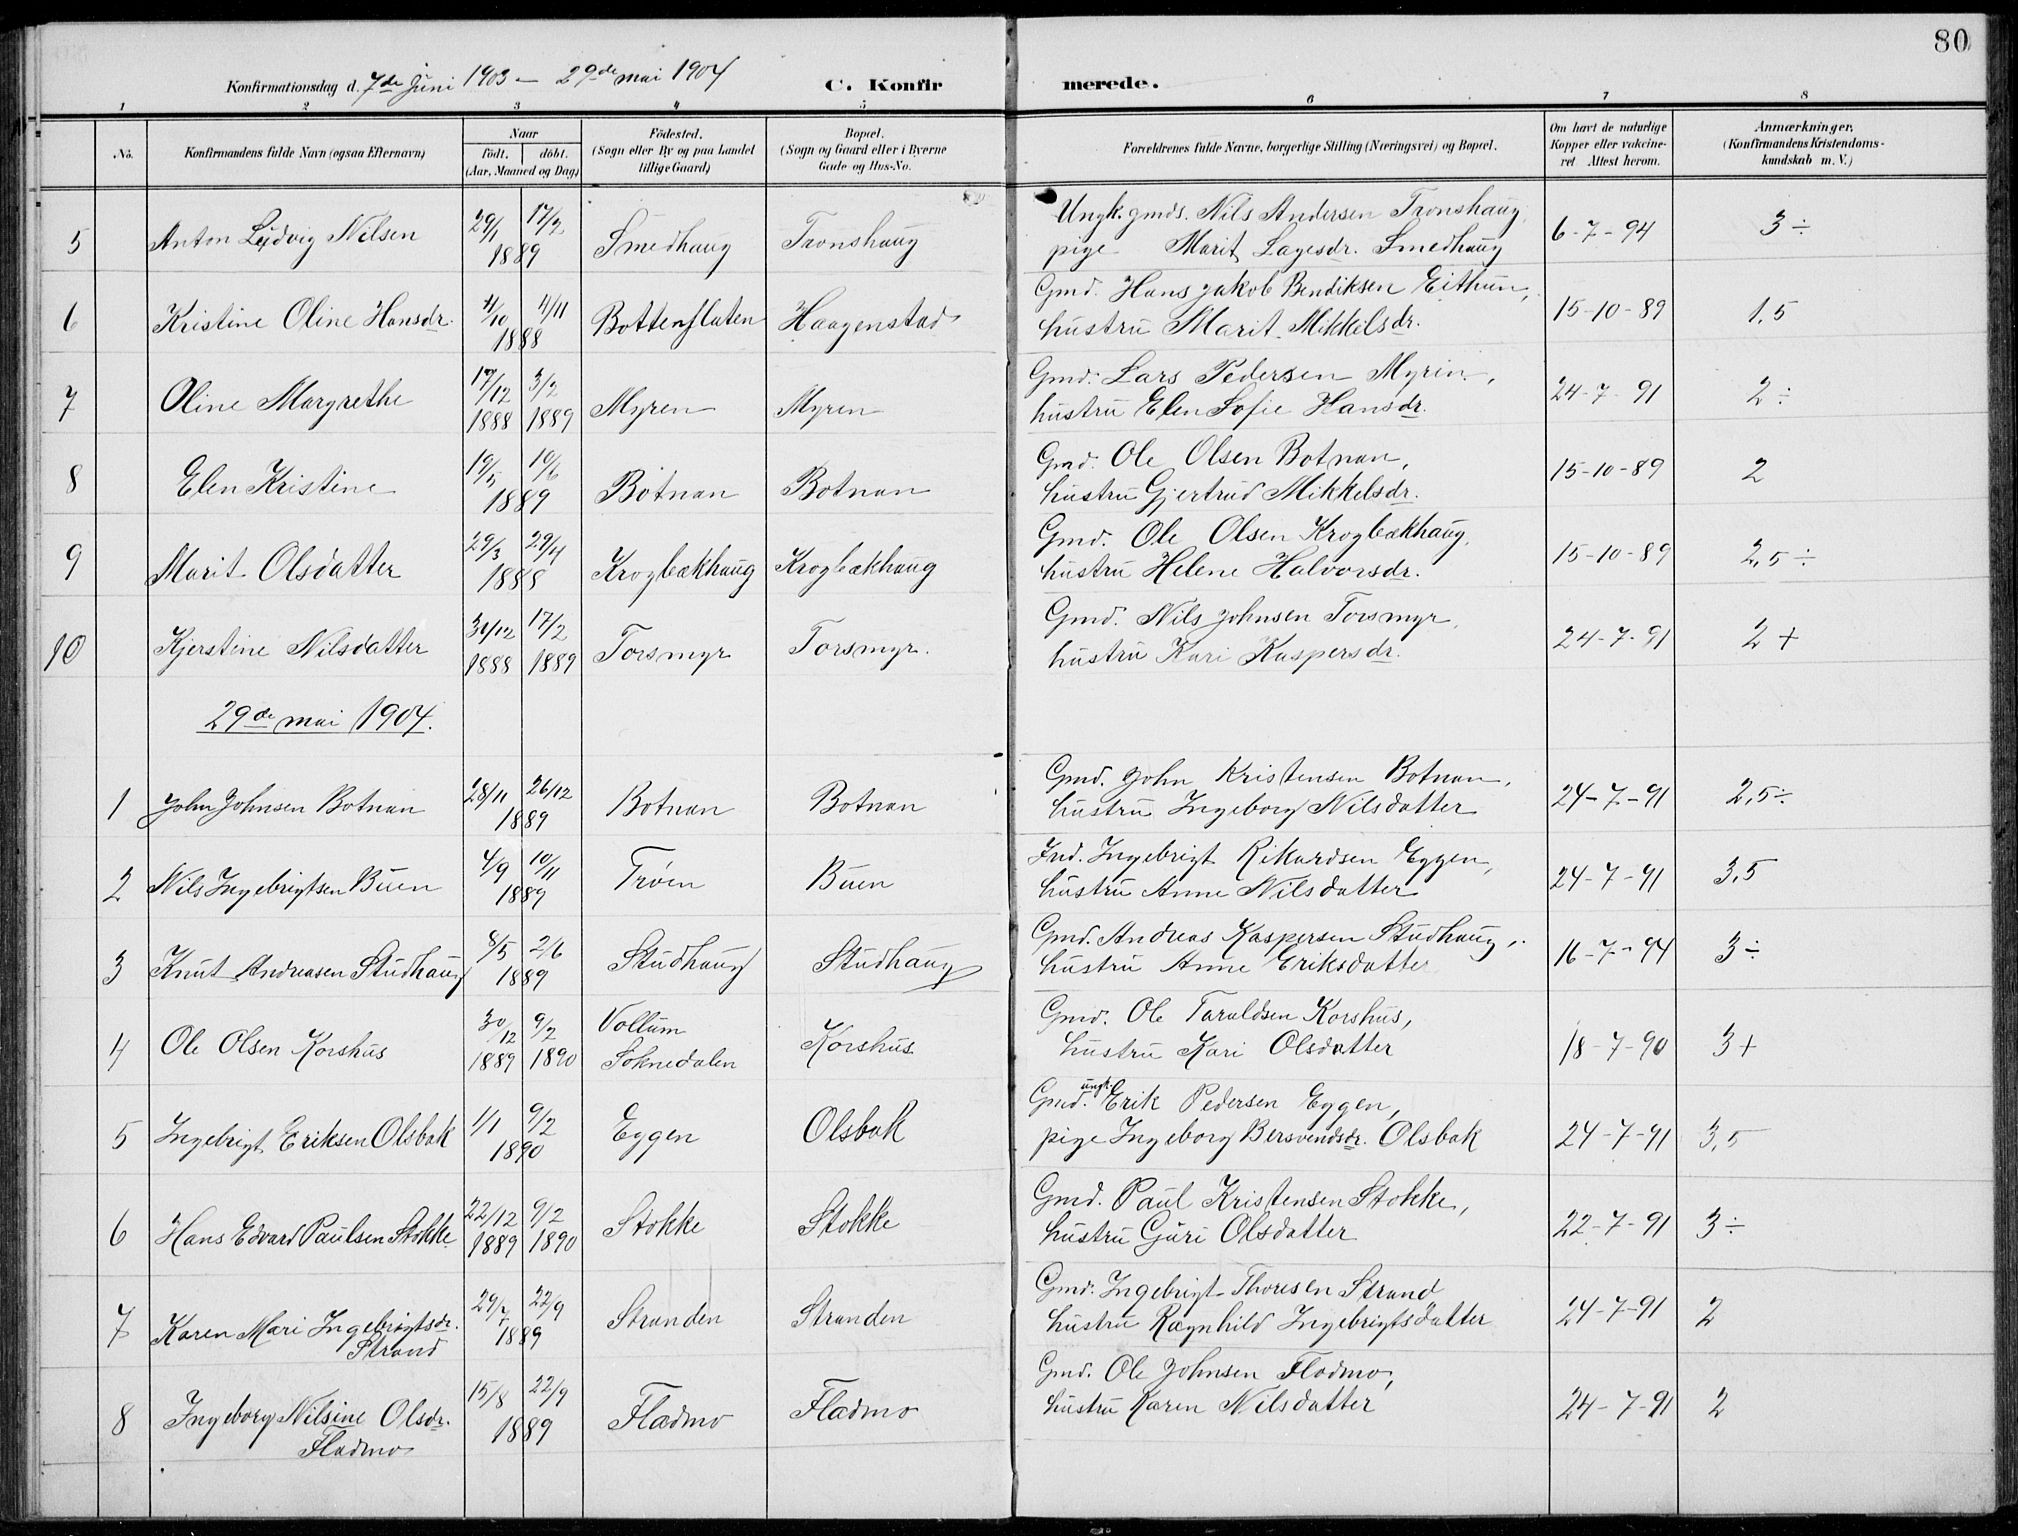 80
Konfirmationsdag d. 7de Juni 1903 – 29de mai 1904
C. Konfirmerede.
1 2 3 4 5 6 7 8
No.
Konfirmandens fulde Navn (ogsaa Efternavn)
Naar
födt. döbt.
(Aar, Maaned og Dag)
Födested.
(Sogn eller By og paa Landet
tillige Gaard)
Bopæl.
(Sogn og Gaard eller i Byerne
Gade og Hus-No.
Forældrenes fulde Navne, borgerlige Stilling (Næringsvei) og Bopæl.
Om havt de naturlige
Kopper eller vakcine-
ret Attest herom.
Anmærkninger,
(Konfirmandens Kristendoms-
kundskab m. V.)
5 Anton Ludvig Nilsen 29/1 17/2 1889 Smedhaug Tronshaug Ungk. gmds. Nils Andersen Tronshaug,
pige Marit Lagesdr. Smedhaug 6-7-94 3 ÷
6 Kristine Oline Hansdr. 4/10 4/11 1888 Bottenflaten Haagenstad Gmd. Hans Jakob Bendiksen Eithun,
hustru Marit Mikkelsdr. 15-10-89 1,5
7 Oline Margrethe 17/12 1888 3/2 1889 Myren Myren Gmd. Lars Pedersen Myrin,
hustru Elen Sofie Hansdr. 24-7-91 2 ÷
8 Elen Kristine 19/5 10/6 1889 Botnan Botnan Gmd. Ole Olsen Botnan,
hustru Gjertrud Mikkelsdr. 15-10-89 2
9 Marit Olsdatter 29/3 29/4 1888 Krogbækhaug Krogbækhaug Gmd. Ole Olsen Krogbækhaug,
hustru Helene Halvorsdr. 15-10-89 2,5 ÷
10 Kjerstine Nilsdatter 31/12 1888 17/2 1889 Torsmyr Torsmyr. Gmd. Nils Johnsen Torsmyr,
hustru Kari Kaspersdr. 24-7-91 2 +
29de mai 1904.
1 John Johnsen Botnan 28/11 26/12 1889 Botnan Botnan Gmd. John Kristensen Botnan,
hustru Ingeborg Nilsdatter 24-7-91 2,5 ÷
2 Nils Ingebrigtsen Buen 4/9 10/11 1889 Trøen Buen Ind. Ingebrigt Rikardsen Eggen,
hustru Anne Nilsdatter 24-7-91 3,5
3 Knut Andreasen Studhaug 8/5 2/6 1889 Studhaug Studhaug Gmd. Andreas Kaspersen Studhaug,
hustru Anne Eriksdatter 16-7-94 3 ÷
4 Ole Olsen Korshus 30/12 1889 9/2 1890 Vollum Soknedalen Korshus Gmd. Ole Taraldsen Korshus,
hustru Kari Olsdatter 18-7-90 3 +
5 Ingebrigt Eriksen Olsbak 1/1 9/2 1890 Eggen Olsbak Gmd. ungk. Erik Pedersen Eggen,
pige Ingeborg Bersvendsdr. Olsbak 24-7-91 3,5
6 Hans Edvard Paulsen Stokke 22/12 1889 9/2 1890 Stokke Stokke Gmd. Paul Kristensen Stokke,
hustru Guri Olsdatter 22-7-91 3 ÷
7 Karen Mari Ingebrigtsdr.
Strand 29/7 22/9 1889 Stranden Stranden Gmd. Ingebrigt Thoresen Strand
hustru Ragnhild Ingebrigtsdatter 24-7-91 2
8 Ingeborg Nilsine Olsdr.
Fladmo 15/8 22/9 1889 Fladmo Fladmo Gmd. Ole Johnsen Fladmo,
hustru Karen Nilsdatter 24-7-91 2